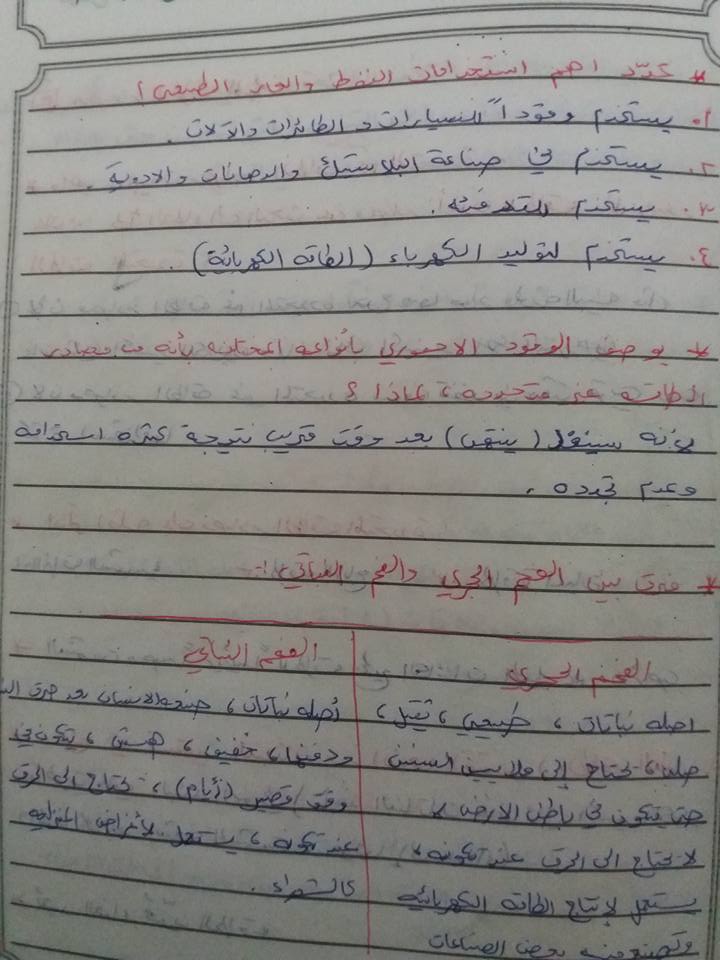 * عدد اهم استخدامات النفط والغاز الطبيعي؟
١. يستخدم وقوداً للسيارات و الطائرات والآلات.
٢. يستخدم في صناعة البلاستك والدهانات والادوية.
٣. يستخدم للتدفئه.
٤. يستخدم لتوليد الكهرباء (الطاقه الكهربائة).
* يوصف الوقود الاحفوري بأنواعه المختلفه بأنه من مصادر
الطاقة غير متجدده، لماذا؟
لأنه سينفذ (ينتهي) بعد وقت قريب نتيجة كثره استخدامه
وعدم تجدده.
* فرق بين الفحم الحجري والفحم النباتي:-
الفحم الحجري
اصله نباتات، طبيعي، ثقيل،
صلب، يحتاج إلى ملايين السنين
حتى يتكون في باطن الارض،
لا يحتاج الى الحرق عند تكونه،
يستعمل لإنتاج الطاقه الكهربائيه
وتصنع منه بعض الصناعات
الفحم النباتي
أصله نباتات، صنعه الانسان بعد حرق
ودفنها، خفيف، هش، يتكون في
وقت قصير (أيام)، يحتاج الى الحرق
عند تكونه، يستعمل لأغراض المنزليه
كالشواء.